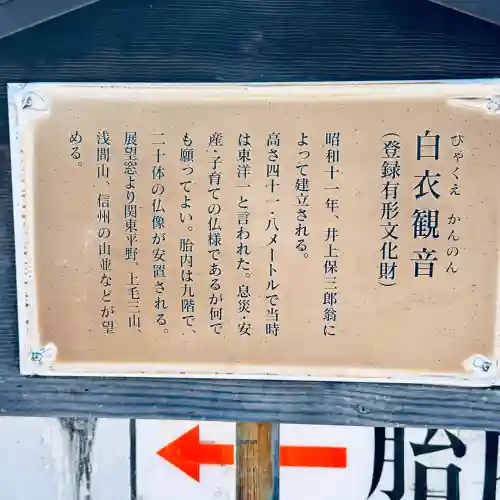 白衣観音
びゃくえ かんのん
(登録有形文化財)
昭和十一年、井上保三郎翁に
よって建立される。
高さ四十一・八メートルで当時
は東洋一と言われた。息災・安
産・子育ての仏様であるが何で
も願ってよい。胎内は九階で、
二十体の仏像が安置される。
展望窓より関東平野、上毛三山、
浅間山、信州の山並などが望
める。
胎